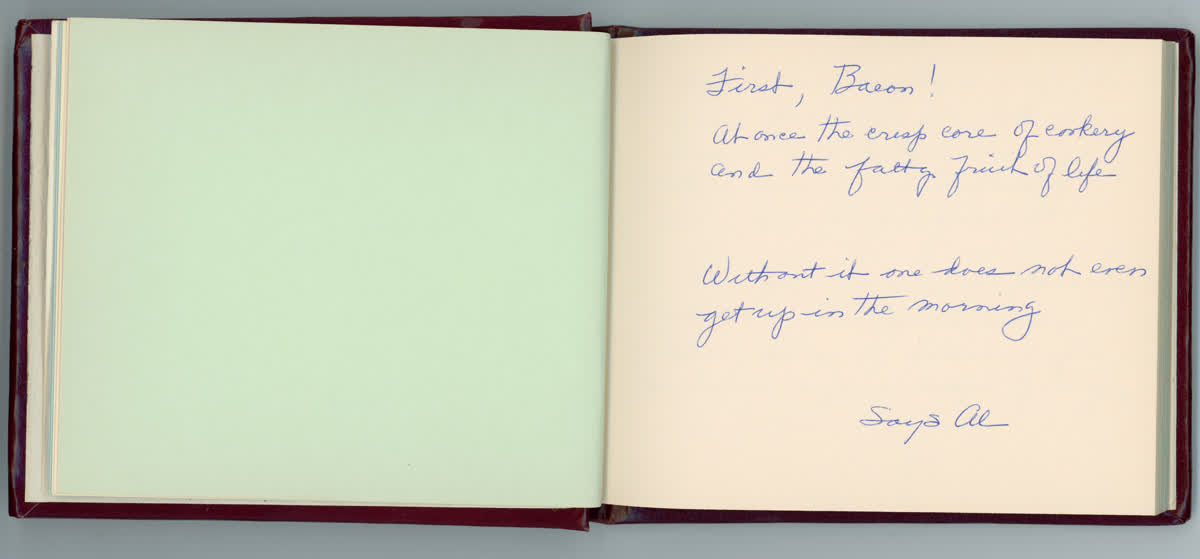 First, Bacon!
At once the crisp core of cookery
and the fatty fruit of life
Without it one does not even
get up in the morning
Says Al